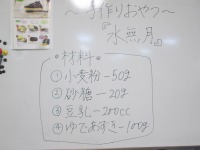 ～手作りおやつ～
『水無月』
・材料
①小麦粉―50g
②砂糖―20g
③豆乳―200cc
④ゆであずき―100g